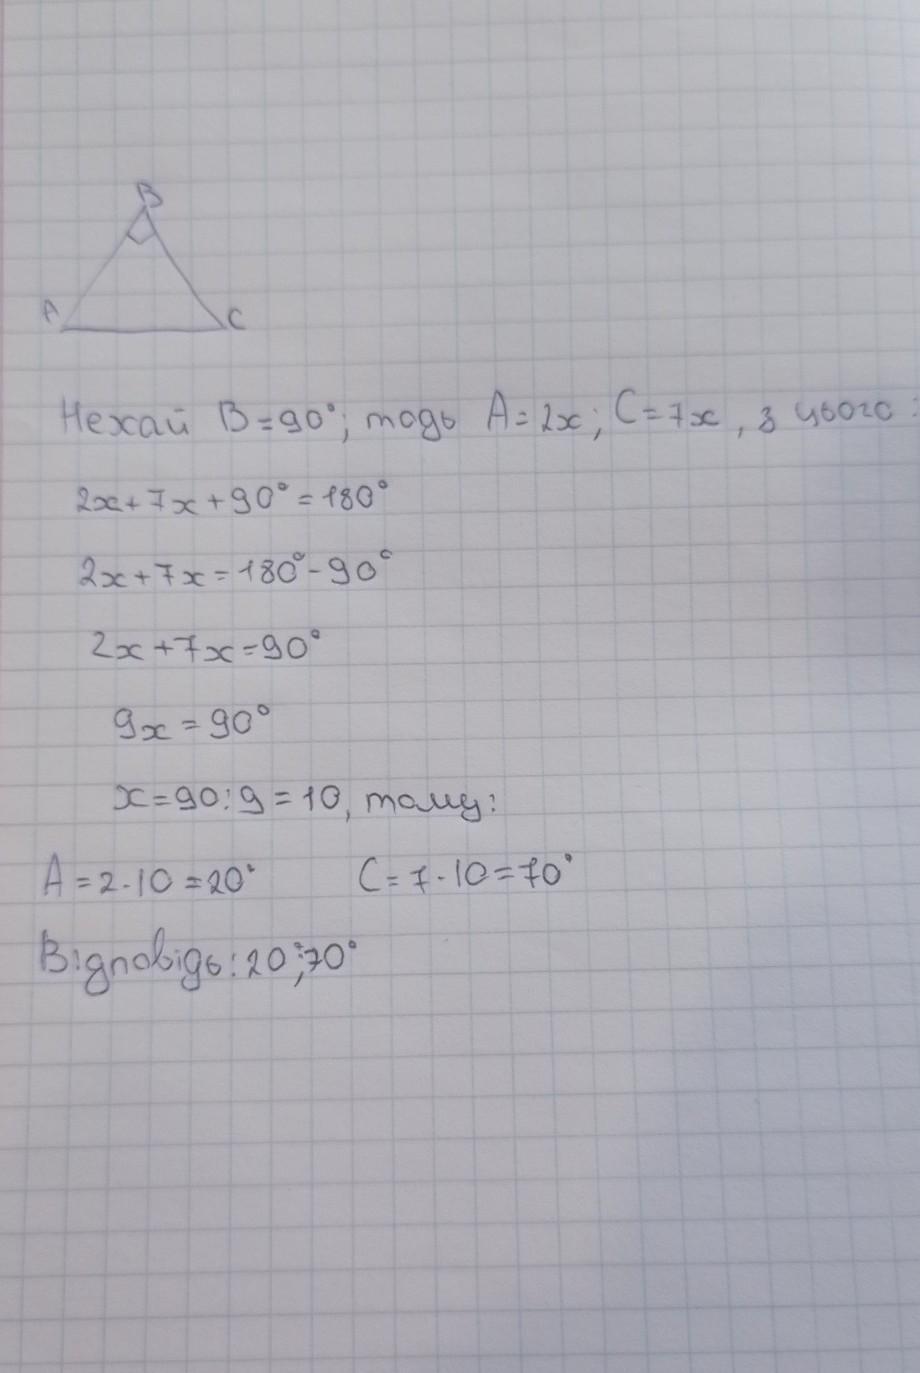 B
A
C
Нехай B=90°; тодь A=2x; C=7x, з цього:
2x+7x+90°=180°
2x+7x=180°-90°
2x+7x=90°
9x=90°
x=90:9=10, тому:
A=2·10=20° C=7·10=70°
Відповідь: 20°;70°